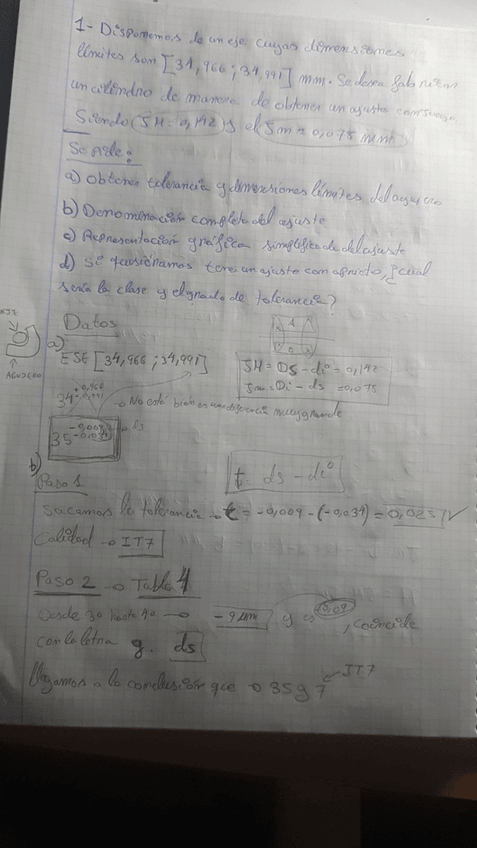 1- Disponemos de un eje cuyas dimensiones
límites son [34,966 ; 34,991] mm. Se desea fabricar
un cilindro de manera de obtener un ajuste con juego
Siendo (JM = 0,142) y el Jm = 0,075 mm
Se pide:
a) Obtener tolerancia y dimensiones límites del agujero
b) Denominación completa del ajuste
c) Representación gráfica simplificada del ajuste
d) Si quisiéramos tener un ajuste con aprieto, ¿cual
sería la clase y el grado de tolerancia?
EJE
AGUJERO
Datos
a)
EJE [34,966 ; 34,991]
JM = DS - di = 0,142
Jm = Di - ds = 0,075
34 +0,966 +0,991 → No está bien es una diferencia muy grande
35 -0,009 -0,034 ds
b)
t = ds - di
Paso 1
Sacamos la tolerancia → t = -0,009 - (-0,034) = 0,025 ✓
Calidad → IT7
Paso 2 → Tabla 4
Desde 30 hasta 40 → -9 µm y es 0,09, coincide
con la letra g. ds
Llegamos a la conclusión que → 35g7 IT7